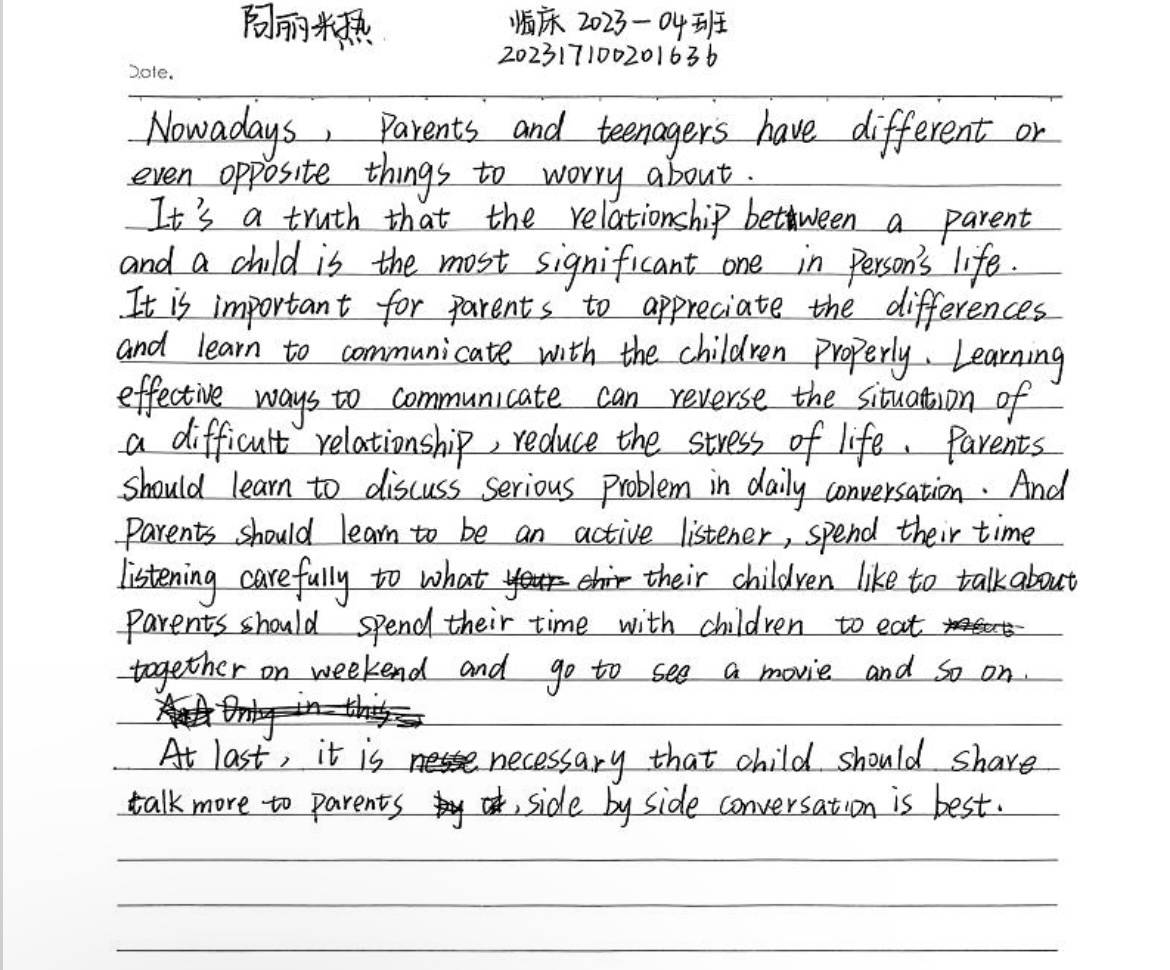 阿丽米热 临床2023-04班
202317100201636
Date.
Nowadays, Parents and teenagers have different or
even opposite things to worry about.
It's a truth that the relationship between a parent
and a child is the most significant one in person's life.
It is important for parents to appreciate the differences
and learn to communicate with the children properly. Learning
effective ways to communicate can reverse the situation of
a difficult relationship, reduce the stress of life. Parents
should learn to discuss serious problem in daily conversation. And
Parents should learn to be an active listener, spend their time
listening carefully to what their children like to talk about
Parents should spend their time with children to eat
together on weekend and go to see a movie and so on.
Only in this
At last, it is necessary that child should share
talk more to parents, side by side conversation is best.